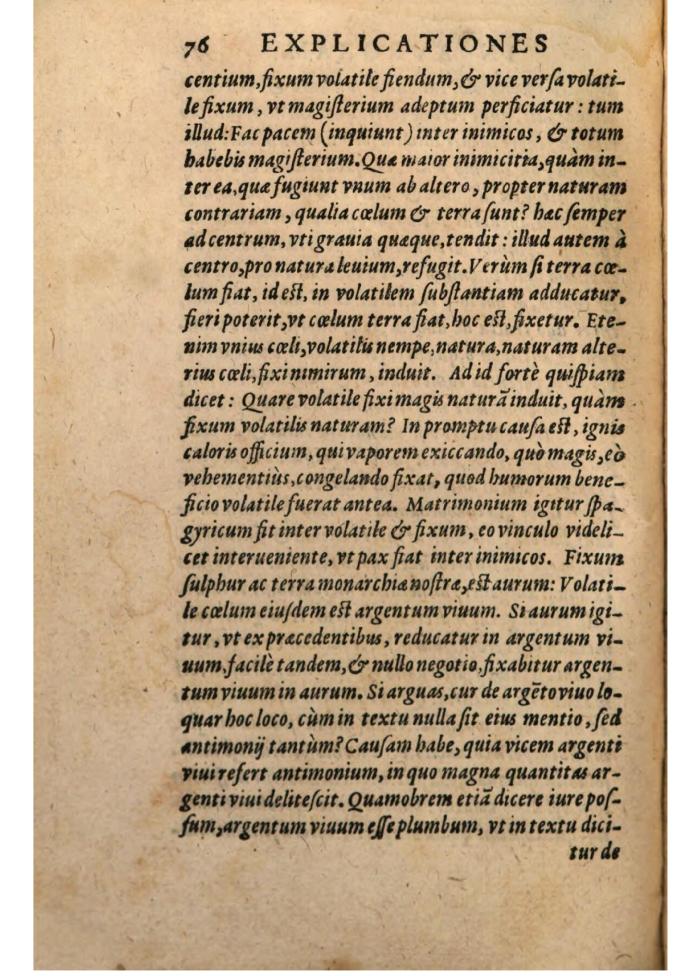 76 EXPLICATIONES
centium, fixum volatile fiendum, & vice versa volati-
le fixum, vt magisterium adeptum perficiatur: tum
illud: Fac pacem (inquiunt) inter inimicos, & totum
habebis magisterium. Quæ maior inimicitia, quàm in-
ter ea, quæ fugiunt vnum ab altero, propter naturam
contrariam, qualia cœlum & terra sunt? hæc semper
ad centrum, vti grauia quæque, tendit: illud autem à
centro, pro natura leuium, refugit. Verùm si terra cœ-
lum fiat, id est, in volatilem substantiam adducatur,
fieri poterit, vt cœlum terra fiat, hoc est, fixetur. Ete-
nim vnius cœli, volatilis nempe, natura, naturam alte-
rius cœli, fixi nimirum, induit. Ad id fortè quispiam
dicet: Quare volatile fixi magis naturã induit, quàm
fixum volatilis naturam? In promptu causa est, ignis
caloris officium, qui vaporem exiccando, quò magis, eò
vehementiùs, congelando fixat, quod humorum bene-
ficio volatile fuerat antea. Matrimonium igitur spa-
gyricum fit inter volatile & fixum, eo vinculo videli-
cet interueniente, vt pax fiat inter inimicos. Fixum
sulphur ac terra monarchiæ nostræ, est aurum: Volati-
le cœlum eiusdem est argentum viuum. Si aurum igi-
tur, vt ex præcedentibus, reducatur in argentum vi-
uum, facilè tandem, & nullo negotio, fixabitur argen-
tum viuum in aurum. Si arguas, cur de argẽto viuo lo-
quar hoc loco, cùm in textu nulla sit eius mentio, sed
antimonij tantùm? Causam habe, quia vicem argenti
viui refert antimonium, in quo magna quantitas ar-
genti viui delitescit. Quamobrem etiã dicere iure pos-
sum, argentum viuum esse plumbum, vt in textu dici-
tur de